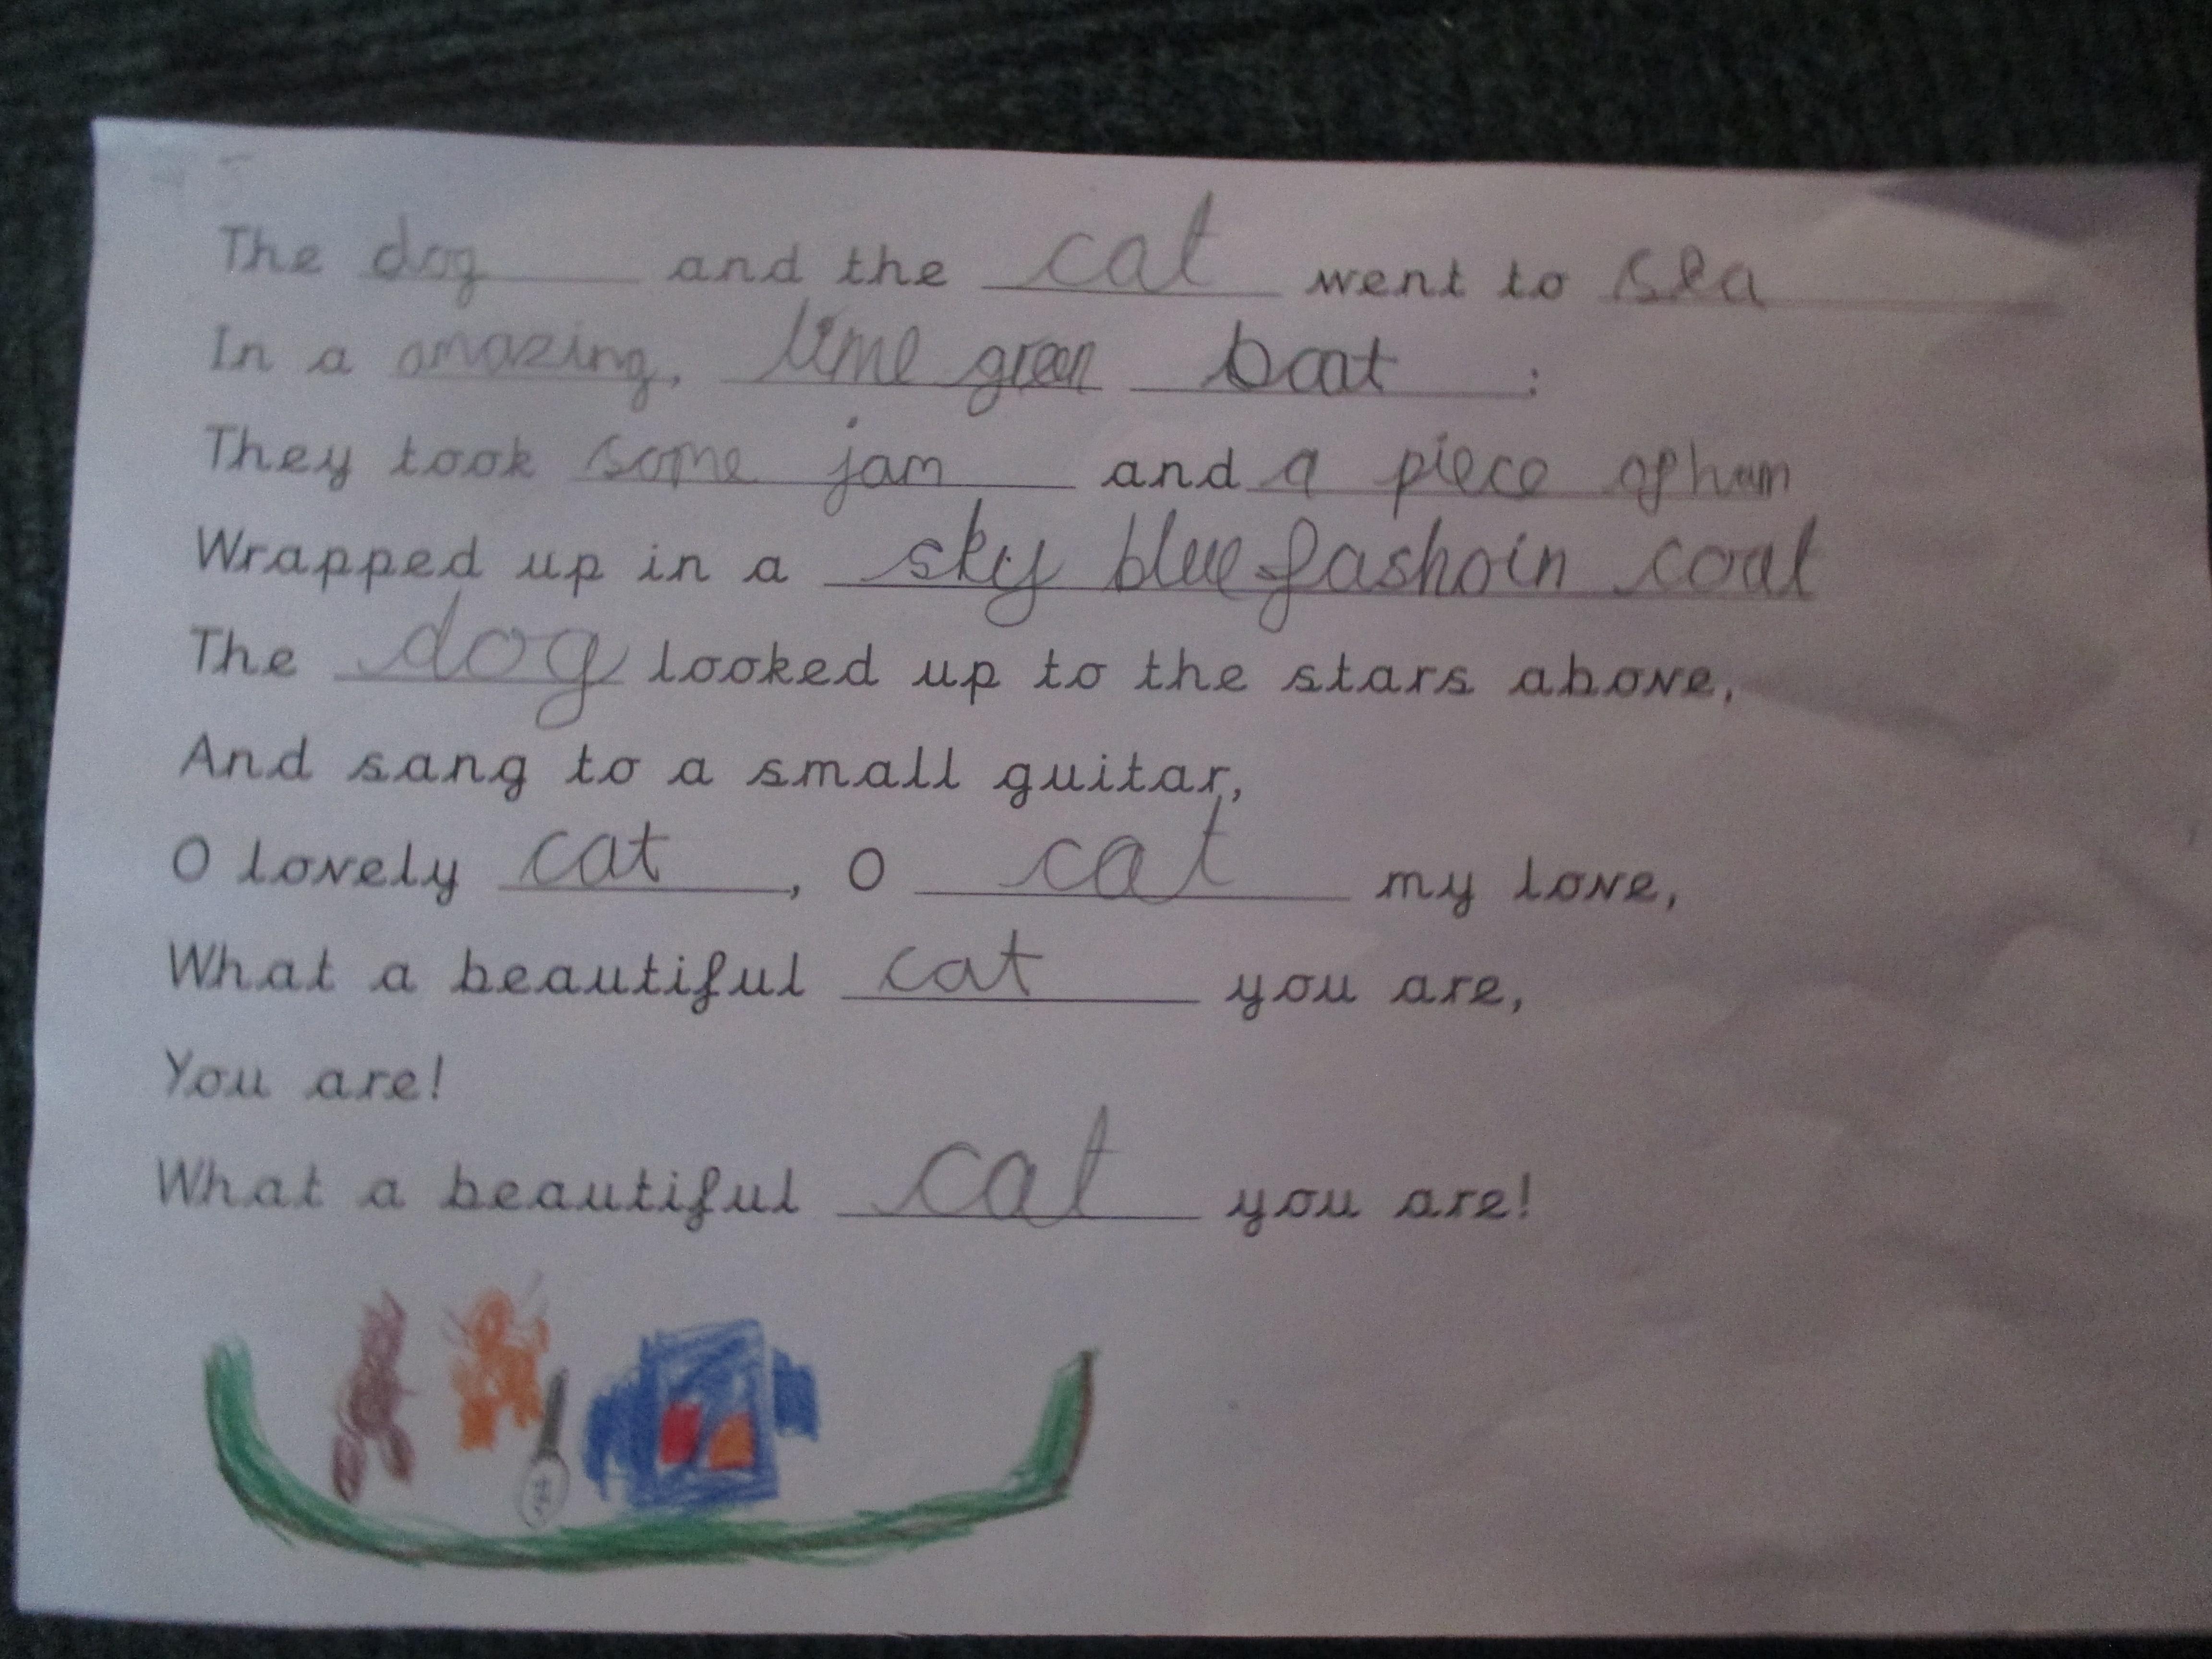 The dog and the cat went to sea
In a amazing, lime green boat :
They took some jam and a piece of ham
Wrapped up in a sky blue fashoin coat
The dog looked up to the stars above,
And sang to a small guitar,
O lovely cat, O cat my love,
What a beautiful cat you are,
You are!
What a beautiful cat you are!